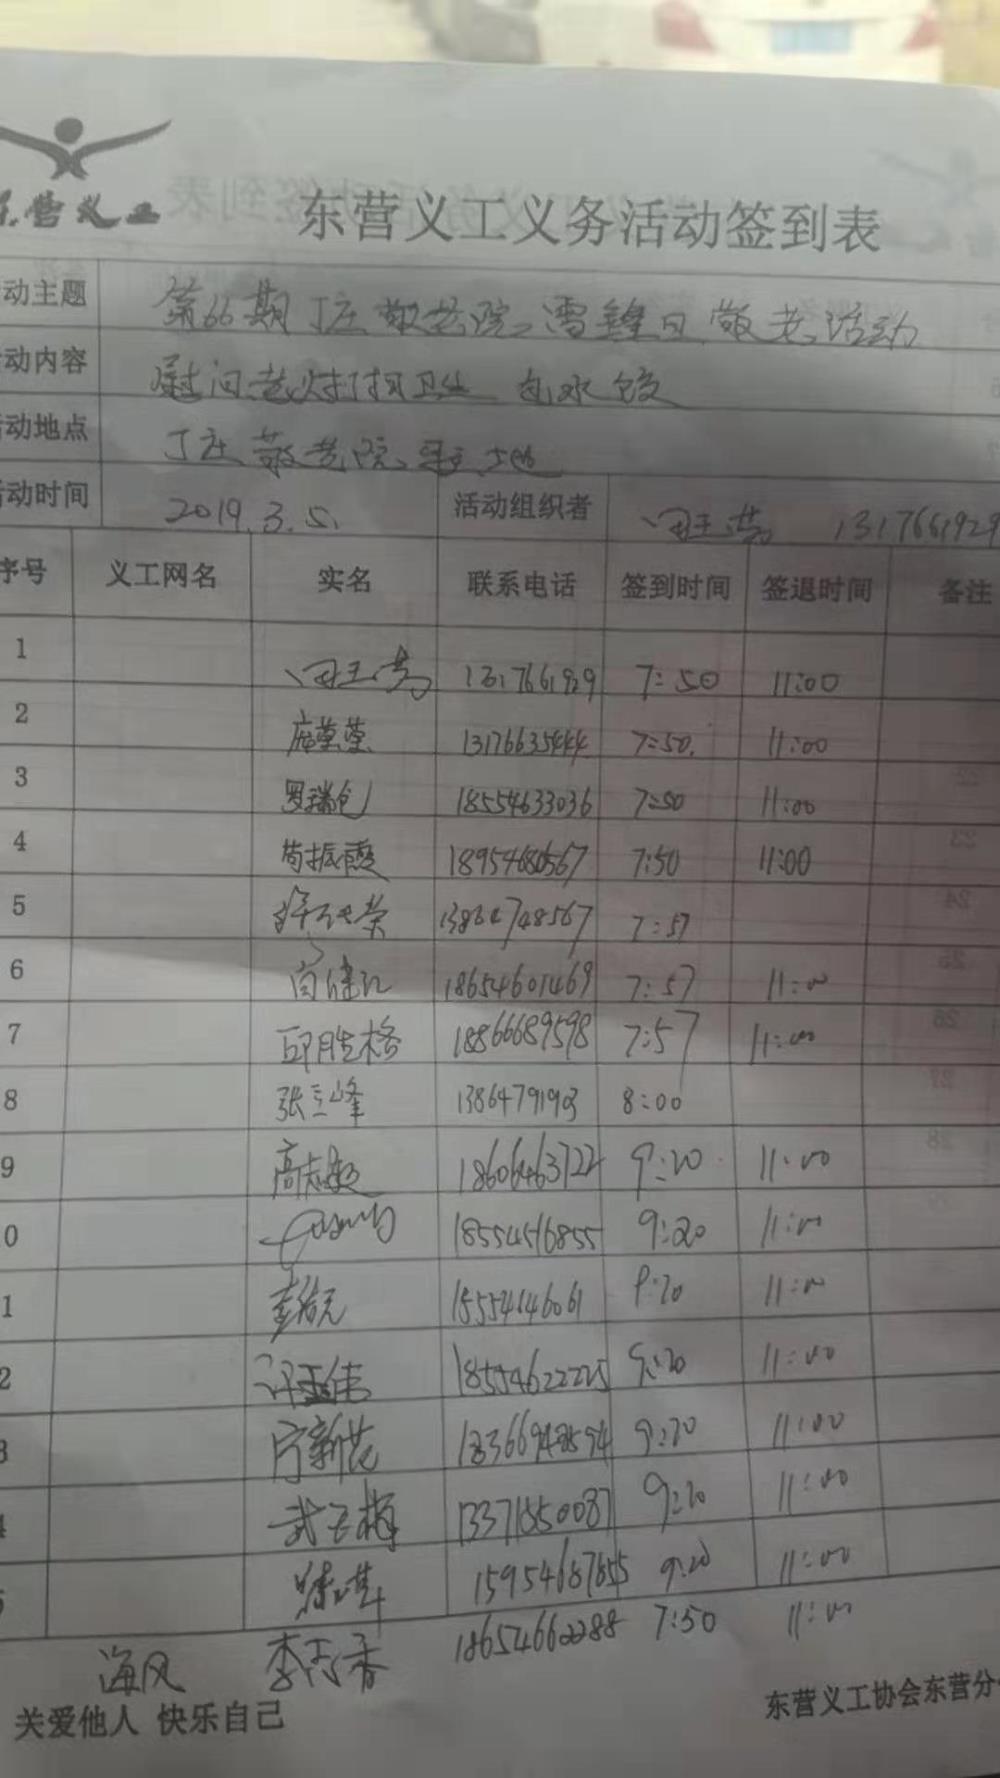 东营义工
东营义工义务活动签到表
动主题 第66期丁庄敬老院雷锋日敬老活动
动内容 慰问老人打扫卫生 包水饺
动地点 丁庄敬老院
动时间 2019.3.5. 活动组织者 1317661929
序号 义工网名 实名 联系电话 签到时间 签退时间 备注
1 7:50 11:00
2 13176635444 7:50. 11:00
3 18554633036 7:50 11:00
4 7:50 11:00
5 13864748567 7:57
6 18654601469 7:57 11:00
7 邱胜格 18866689598 7:57 11:00
8 张三峰 13864791903 8:00
9 18606463722 9:20 11:00
0 18554516855 9:20 11:00
1 15554146061 9:20 11:00
2 18554622225 9:20 11:00
3 宁新花 18366948594 9:20 11:00
4 武玉梅 13371550087 9:20 11:00
5 15954687855 9:20 11:00
海风 李志香 18654662288 7:50 11:00
关爱他人 快乐自己
东营义工协会东营分